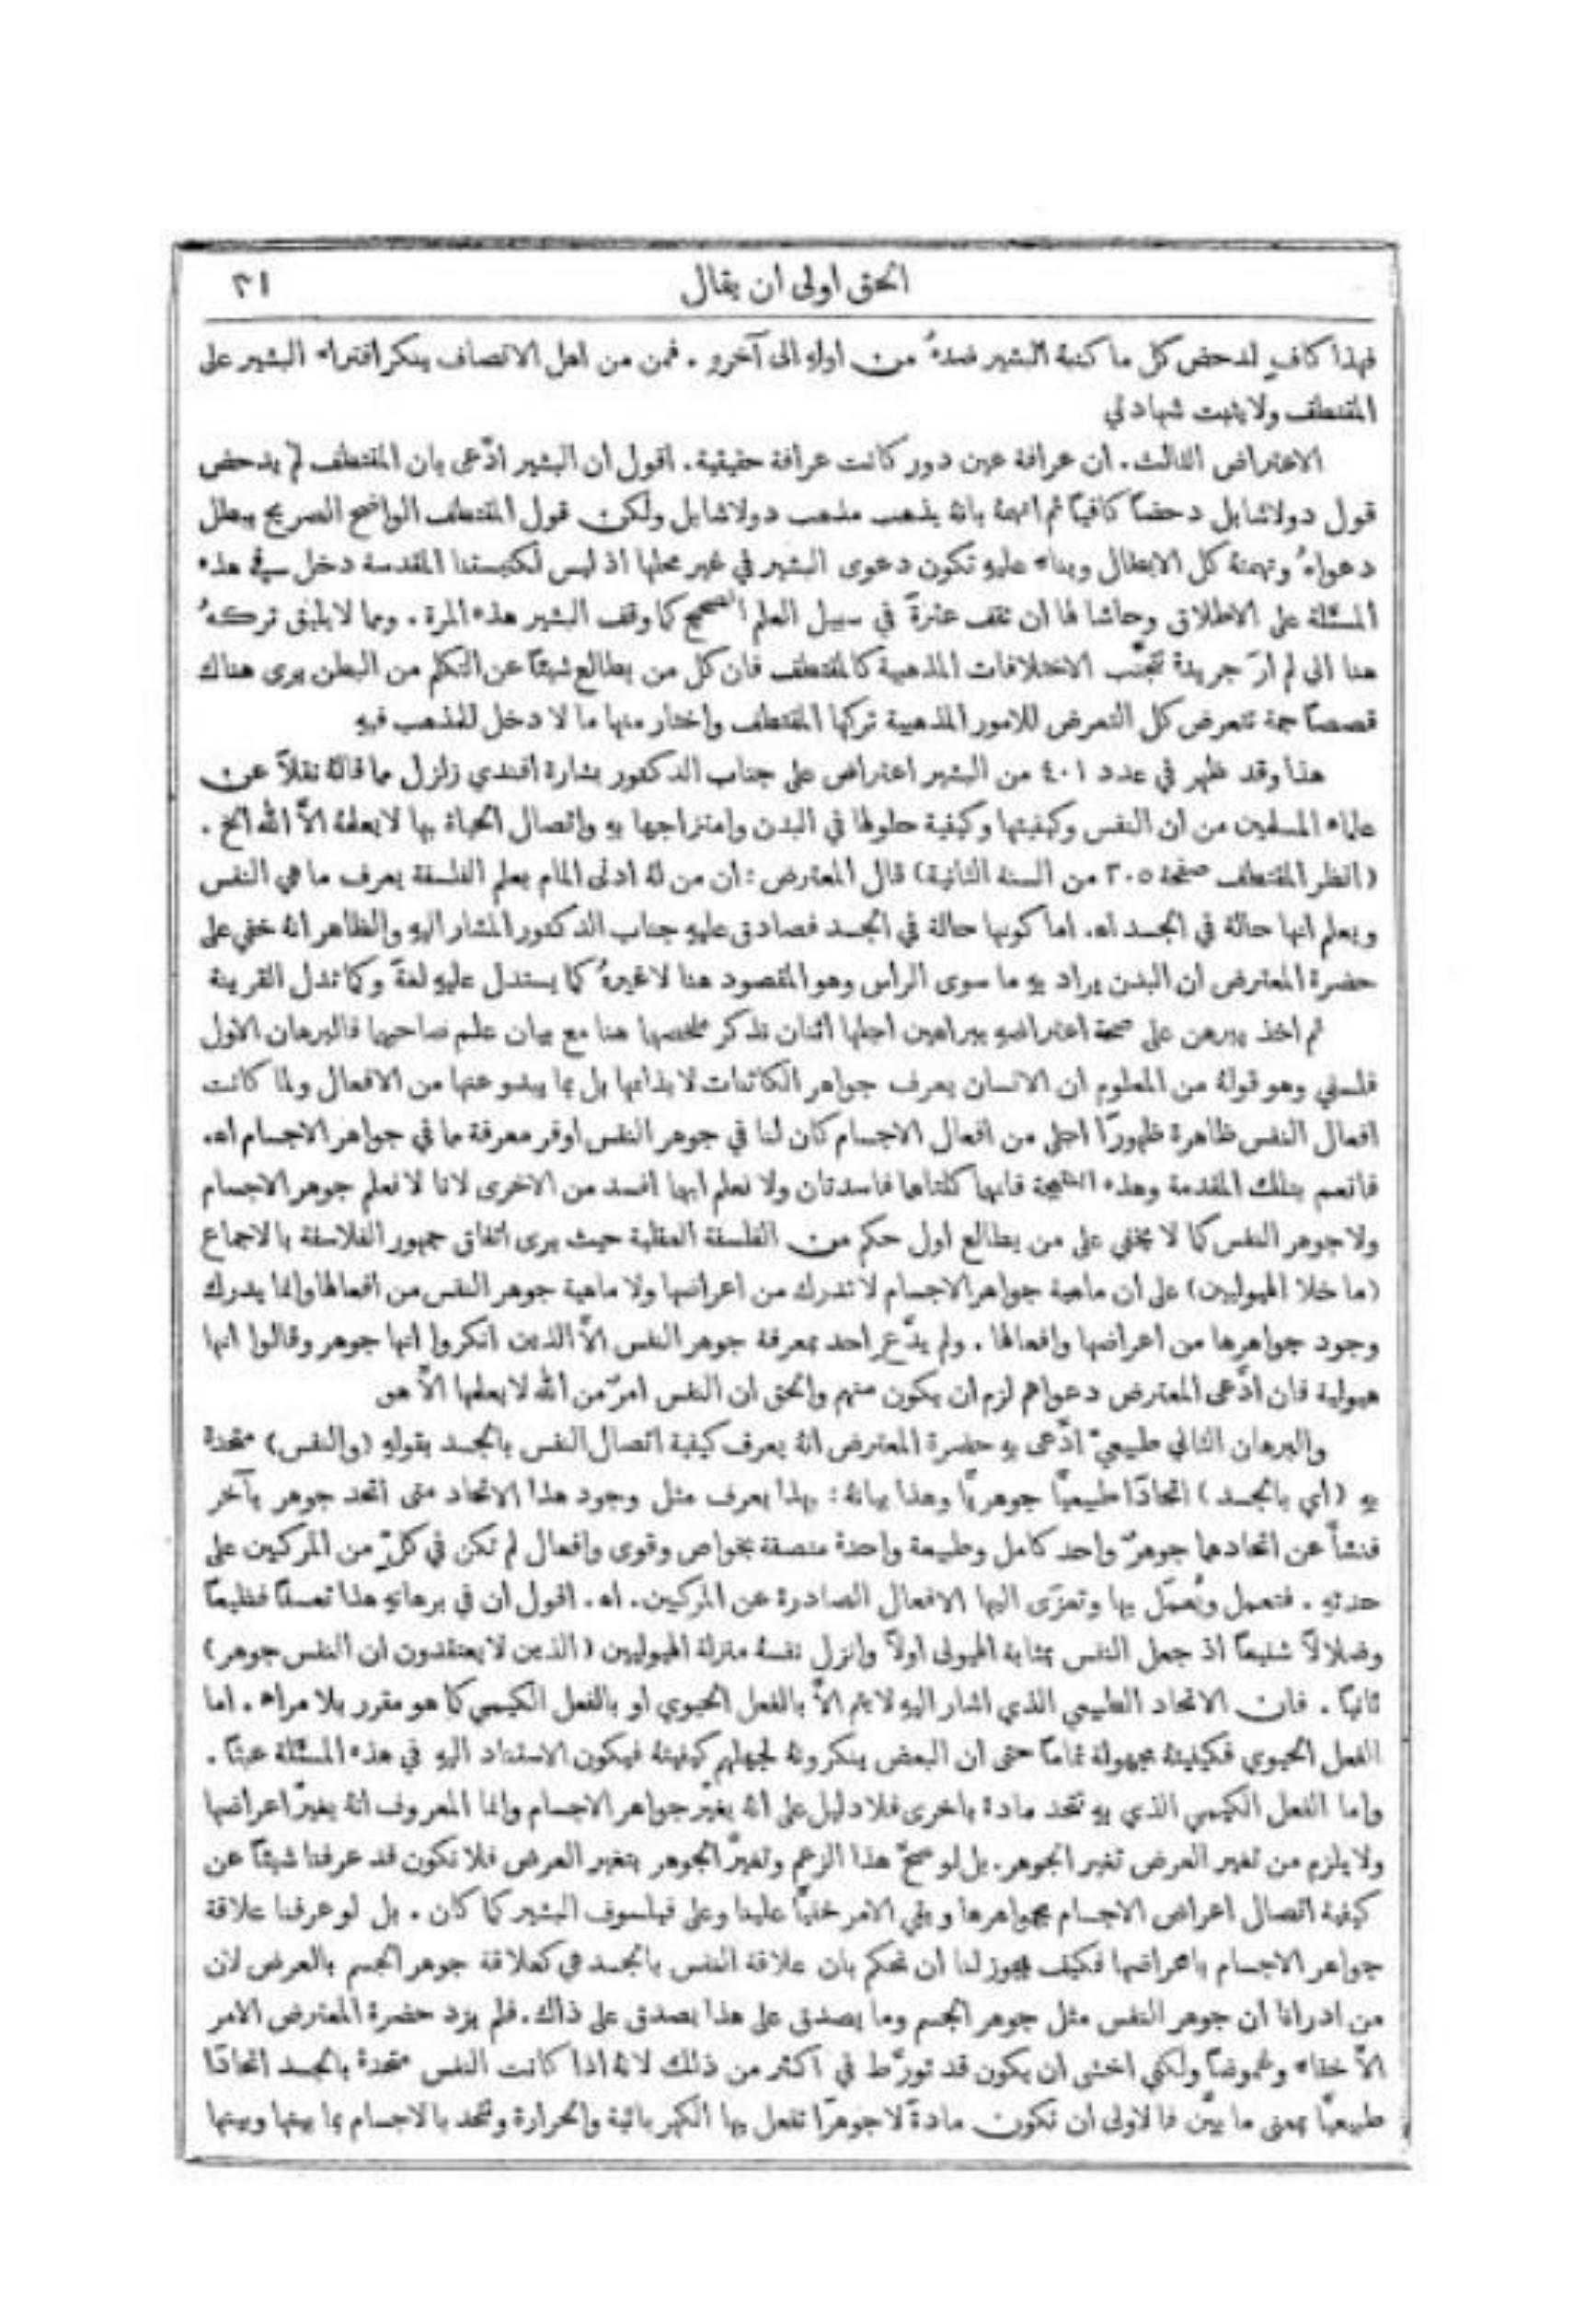 الحق اولى ان يقال
٢١
فهذا كافٍ لدحض كل ما كتبهُ البشير ضدهُ من اولهِ الى آخرهِ . فمن من اهل الانصاف ينكر افتراء البشير على
المقتطف ولا يثبت شهادتي
الاعتراض الثالث . ان عرافة عين دور كانت عرافة حقيقية . اقول ان البشير ادَّعى بان المقتطف لم يدحض
قول دولاشابل دحضًا كافيًا ثم اتهمهُ بانهُ يذهب مذهب دولاشابل ولكن قول المقتطف الواضح الصريح يبطل
دعواهُ وتهمتهُ كل الابطال وبناء عليهِ تكون دعوى البشير في غير محلها اذ ليس لكنيستنا المقدسة دخل في هذه
المسئلة على الاطلاق وحاشا لها ان تقف عثرةً في سبيل العلم الصحيح كما وقف البشير هذه المرة . ومما لا يليق تركهُ
هنا اني لم ارَ جريدة تتجنَّب الاختلافات المذهبية كالمقتطف فان كل من يطالع شيئًا عن التكلم من البطن يرى هناك
قصصًا جمة تتعرض كل التعرض للامور المذهبية تركها المقتطف واختار منها ما لا دخل للمذهب فيهِ
هذا وقد ظهر في عدد ٤٠١ من البشير اعتراض على جناب الدكتور بشارة افندي زلزل مما قالهُ نقلاً عن
علماء المسلمين من ان النفس وكيفيتها وكيفية حلولها في البدن وامتزاجها بهِ واتصال الحياة بها لا يعلمهُ الاَّ الله الخ .
(انظر المقتطف صفحة ٢٠٥ من السنة الثانية) قال المعترض : ان من لهُ ادنى المام بعلم الفلسفة يعرف ما هي النفس
ويعلم انها حالة في الجسد اه. اما كونها حالة في الجسد فصادق عليهِ جناب الدكتور المشار اليهِ والظاهر انهُ خفي على
حضرة المعترض ان البدن يراد بهِ ما سوى الراس وهو المقصود هنا لا غيرهُ كما يستدل عليهِ لغةً وكما تدل القرينة
ثم اخذ يبرهن على صحة اعتراضهِ ببراهين اجلها اثنان نذكر ملخصها هنا مع بيان علم صاحبها فالبرهان الاول
فلسفي وهو قولهُ من المعلوم ان الانسان يعرف جواهر الكائنات لا بذاتها بل بما يبدو عنها من الافعال ولما كانت
افعال النفس ظاهرة ظهورًا اجلى من افعال الاجسام كان لنا في جوهر النفس اوفر معرفة مما في جواهر الاجسام اه.
فانعم بتلك المقدمة وهذه النتيجة فانهما كلتاهما فاسدتان ولا نعلم ايهما افسد من الاخرى لانا لا نعلم جوهر الاجسام
ولا جوهر النفس كما لا يخفى على من يطالع اول حكم من الفلسفة العقلية حيث يرى اتفاق جمهور الفلاسفة بالاجماع
(ما خلا الهيوليين) على ان ماهية جواهر الاجسام لا تدرك من اعراضها ولا ماهية جوهر النفس من افعالها وانما يدرك
وجود جواهرها من اعراضها وافعالها . ولم يدَّعِ احد بمعرفة جوهر النفس الاَّ الذين انكروا انها جوهر وقالوا انها
هيولية فان ادَّعى المعترض دعواهم لزم ان يكون منهم والحق ان النفس امرٌ من الله لا يعلمها الاَّ هو
والبرهان الثاني طبيعيّ ادَّعى بهِ حضرة المعترض انهُ يعرف كيفية اتصال النفس بالجسد بقولهِ (والنفس) متحدة
بهِ (اي بالجسد) اتحادًا طبيعيًّا جوهريًّا وهذا بيانهُ : بهذا يعرف مثل وجود هذا الاتحاد متى اتحد جوهر بآخر
فنشأَ عن اتحادهما جوهرٌ واحد كامل وطبيعة واحدة متصفة بخواص وقوى وافعال لم تكن في كلٍّ من المركبين على
حدتهِ . فتعمل ويُعمَل بها وتعزَى اليها الافعال الصادرة عن المركبين . اه . اقول ان في برهانهِ هذا تعسفًا فظيعًا
وضلالاً شنيعًا اذ جعل النفس بمثابة الهيولى اولاً وانزل نفسهُ منزلة الهيوليين (الذين لا يعتقدون ان النفس جوهر)
ثانيًا . فان الاتحاد الطبيعي الذي اشار اليهِ لا يتم الاَّ بالفعل الحيوي او بالفعل الكيمي كما هو مقرر بلا مراء . اما
الفعل الحيوي فكيفيتهُ مجهولة تمامًا حتى ان البعض ينكرونهُ لجهلهم كيفيتهُ فيكون الاستناد اليهِ في هذه المسئلة عبثًا .
واما الفعل الكيمي الذي بهِ تتحد مادة باخرى فلا دليل على انهُ يغيّر جواهر الاجسام وانما المعروف انهُ يغيّر اعراضها
ولا يلزم من تغير العرض تغير الجوهر . بل لو صحَّ هذا الزعم وتغيَّر الجوهر بتغير العرض فلا نكون قد عرفنا شيئًا عن
كيفية اتصال اعراض الاجسام بجواهرها وبقي الامر خفيًّا علينا وعلى فيلسوف البشير كما كان . بل لو عرفنا علاقة
جواهر الاجسام باعراضها فكيف يجوز لنا ان نحكم بان علاقة النفس بالجسد هي كعلاقة جوهر الجسم بالعرض لان
من ادرانا ان جوهر النفس مثل جوهر الجسم وما يصدق على هذا يصدق على ذاك . فلم يزد حضرة المعترض الامر
الاَّ خفاء وغموضًا ولكني اخشى ان يكون قد تورَّط في اكثر من ذلك لانهُ اذا كانت النفس متحدة بالجسد اتحادًا
طبيعيًّا بمعنى ما بيَّن فالاولى ان تكون مادةً لا جوهرًا تفعل بها الكهربائية والحرارة وتتحد بالاجسام بما بينها وبينها